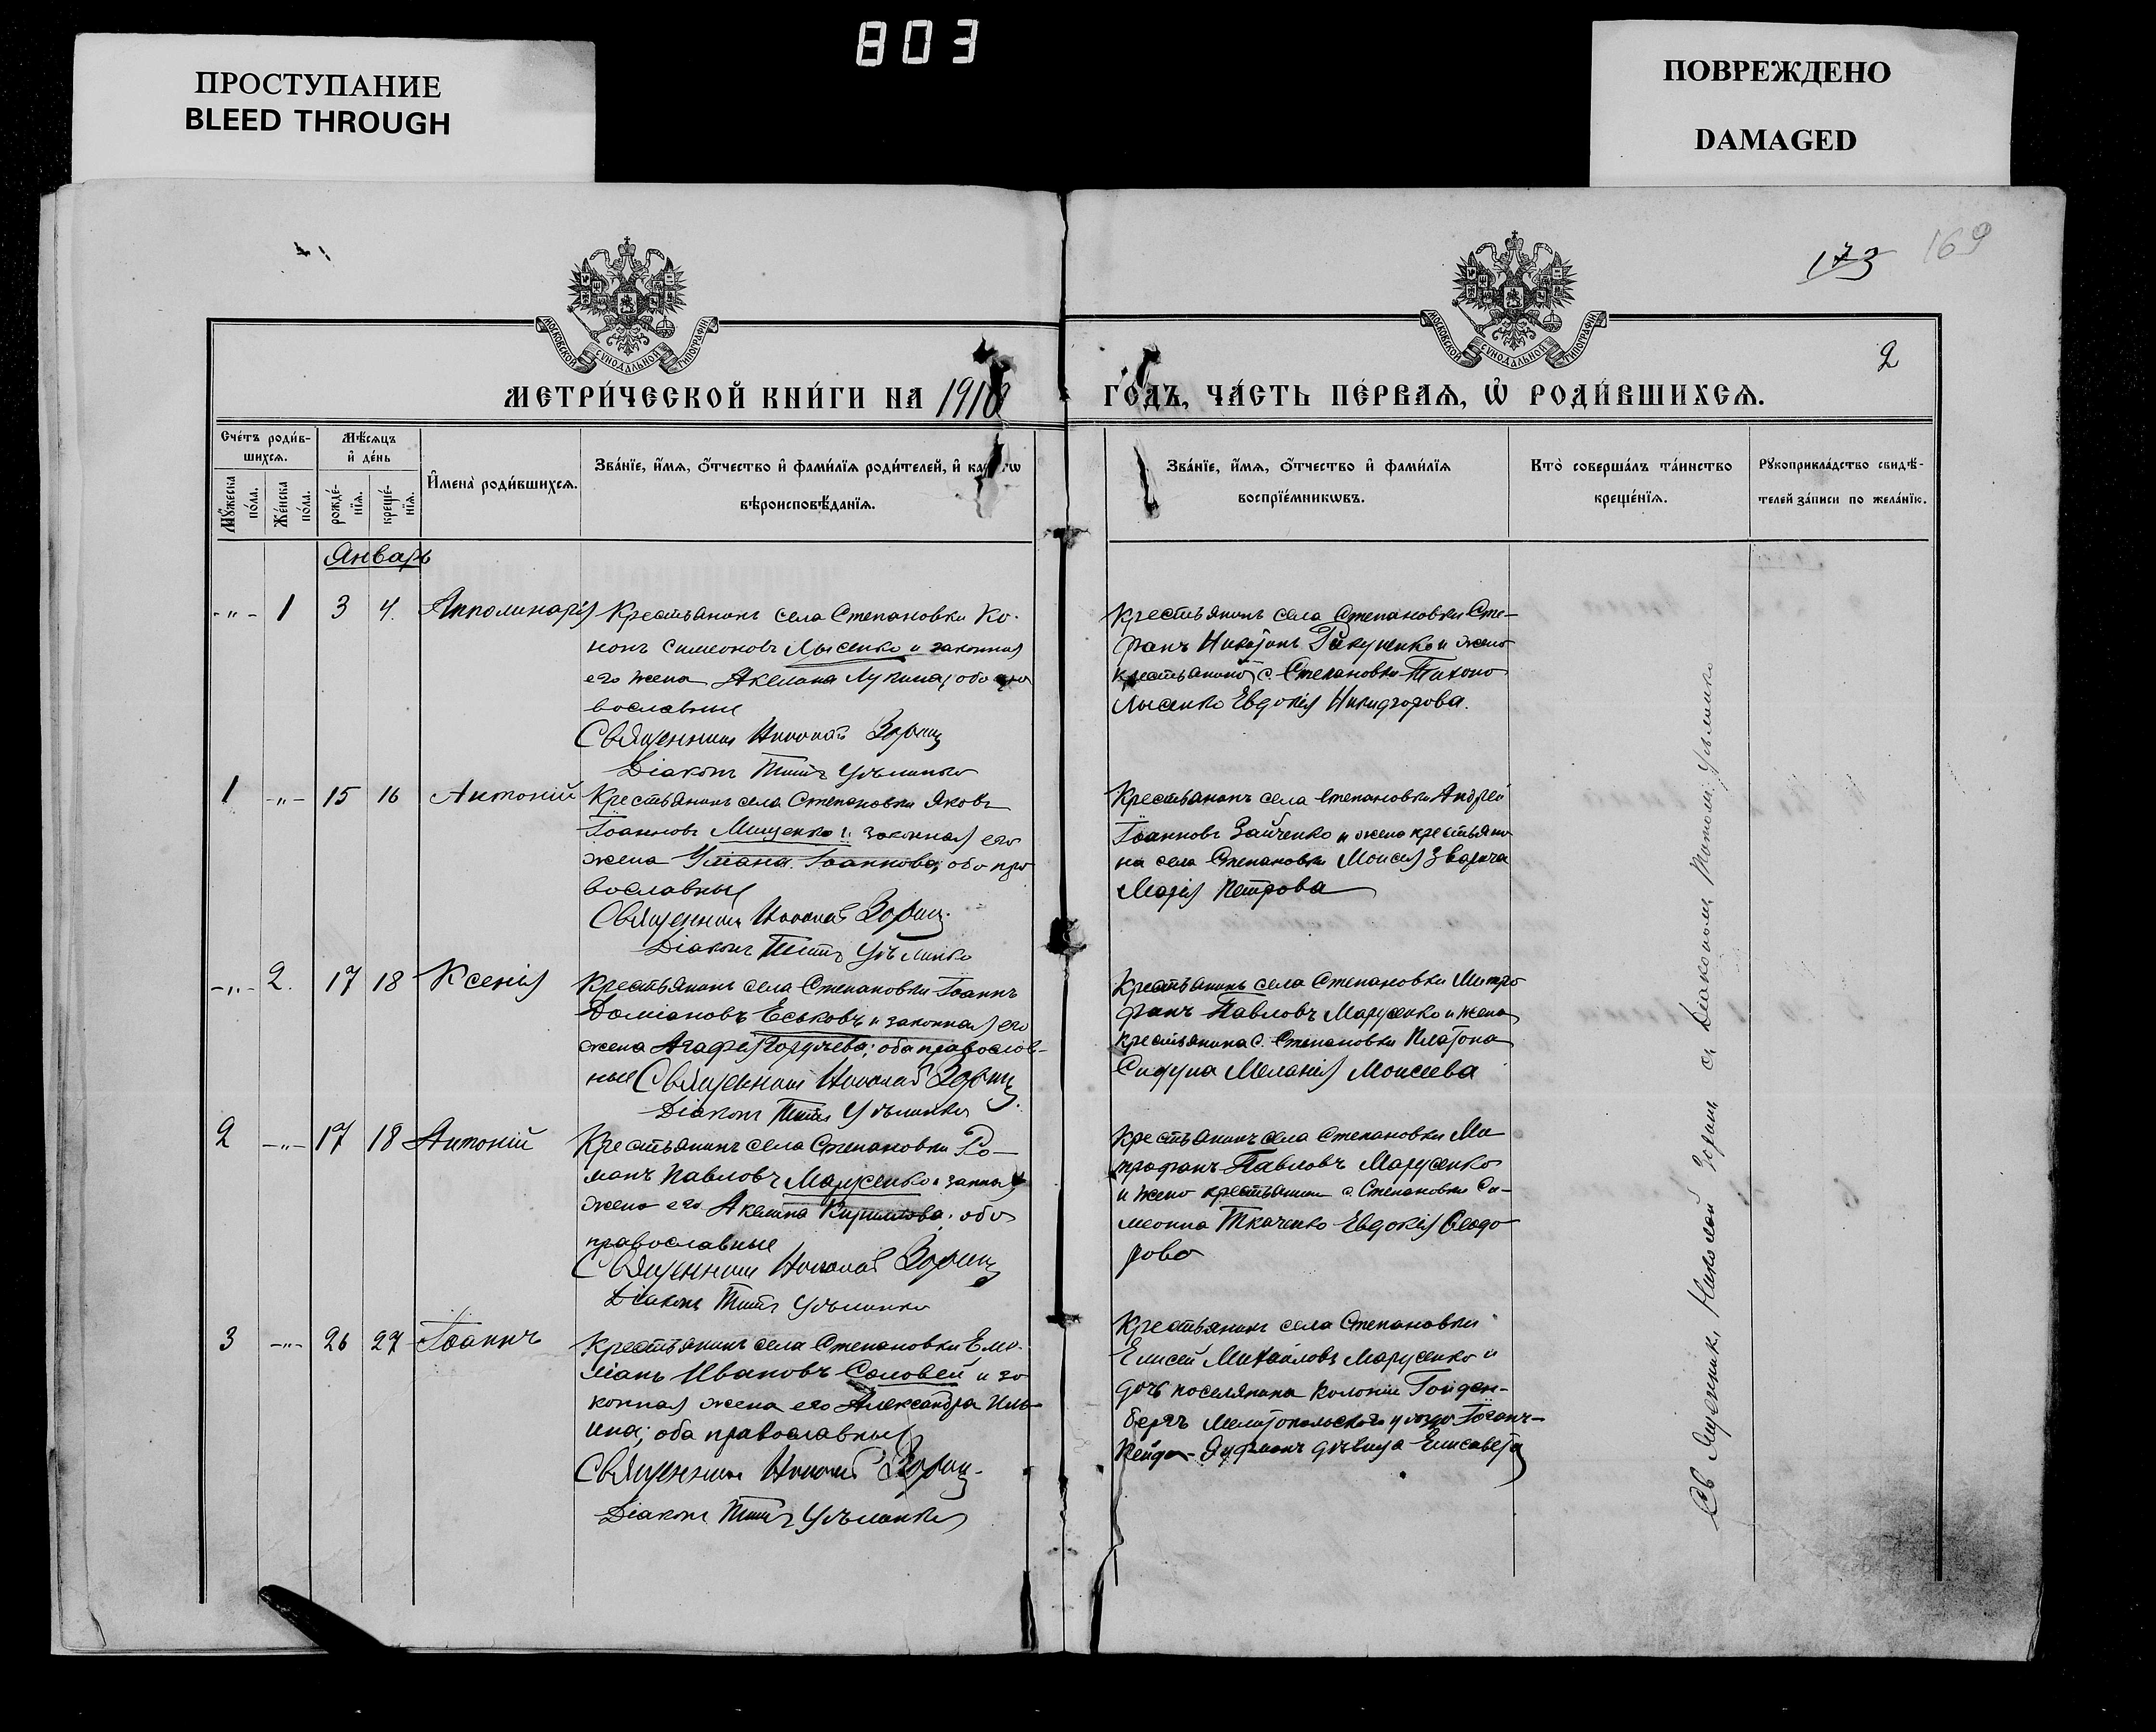 803
ПРОСТУПАНИЕ
BLEED THROUGH
ПОВРЕЖДЕНО
DAMAGED
173 169
МОСКОВСКОЙ СѴНОДАЛЬНОЙ ТИПОГРАФІИ
МОСКОВСКОЙ СѴНОДАЛЬНОЙ ТИПОГРАФІИ
2
МЕТРИ́ЧЕСКОЙ КНИ́ГИ НА 1910
ГО́ДЪ, ЧА́СТЬ ПЕ́РВАѦ, Ѡ҆ РОДИ́ВШИХСѦ.
Сче́тъ роди́в-
шихсѧ.
Мѣ́сѧцъ
и҆ де́нь
Мꙋ́жеска
по́ла.
Же́нска
по́ла.
рожде́-
нїѧ.
креще́-
нїѧ.
И҆мена̀ роди́вшихсѧ.
Зва́нїе, и҆́мѧ, ѻ҆́тчество и҆ фами́лїѧ роди́телей, и҆
вѣроисповѣ́данїѧ.
Зва́нїе, и҆́мѧ, ѻ҆́тчество и҆ фами́лїѧ
воспрїе́мникѡвъ.
Кто̀ соверша́лъ та́инство
креще́нїѧ.
Рꙋкоприкла́дство свидѣ́-
телей за́писи по жела́нїю.
Январь
-"- 1 3 4. Апполинарія
Крестьянинъ села Степановки Ко-
нонъ Симеоновъ Лысенко и законная
его жена Акелина Лукина, оба
вославные
Священникъ Николай Зорин
Діаконъ Титъ
Крестьянинъ села Степановки Сте-
фанъ и жена
крестьянина с. Степановки Тихона
Лысенко Евдокія Никифорова.
1 -"- 15 16 Антоній
Крестьянинъ села Степановки Яковъ
Іоанновъ Мищенко и законная его
жена Іоаннова, оба пра
вославные
Священникъ Николай Зорин
Діаконъ Титъ
Крестьянинъ села Степановки Андрей
Іоанновъ Зайченко и жена крестьяни
на села Степановки Моисея Зварича
Марія Петрова
-"- 2. 17 18 Ксенія
Крестьянинъ села Степановки Іоаннъ
Даміановъ Еськовъ и законная его
жена Агафія оба православ-
ные Священникъ Николай Зорин
Діаконъ Титъ
Крестьянинъ села Степановки Митро
фанъ Павловъ Марусенко и жена
крестьянина с. Степановки Платона
Меланія Моисеева
2 -"- 17 18 Антоній
Крестьянинъ села Степановки Ро-
манъ Павловъ Марусенко и
жена его Акелина Кириллова; оба
православные
Священникъ Николай Зорин
Діаконъ Титъ
Крестьянинъ села Степановки Ми
трофанъ Павловъ Марусенко
и жена крестьянина с. Степановки Си-
меона Ткаченко Евдокія Феодо
рова
3 -"- 26 27 Іоаннъ
Крестьянинъ села Степановки Еме-
ліанъ Ивановъ Соловей и за
конная жена его Александра Иль-
ина; оба православные
Священникъ Николай Зорин
Діаконъ Титъ
Крестьянинъ села Степановки
Елисей Михайловъ Марусенко и
дочь поселянина колоніи
бергъ Мелитопольскаго уѣзда
дѣвица Елисавета
Священник Николай Зорин с Діакономъ Титомъ